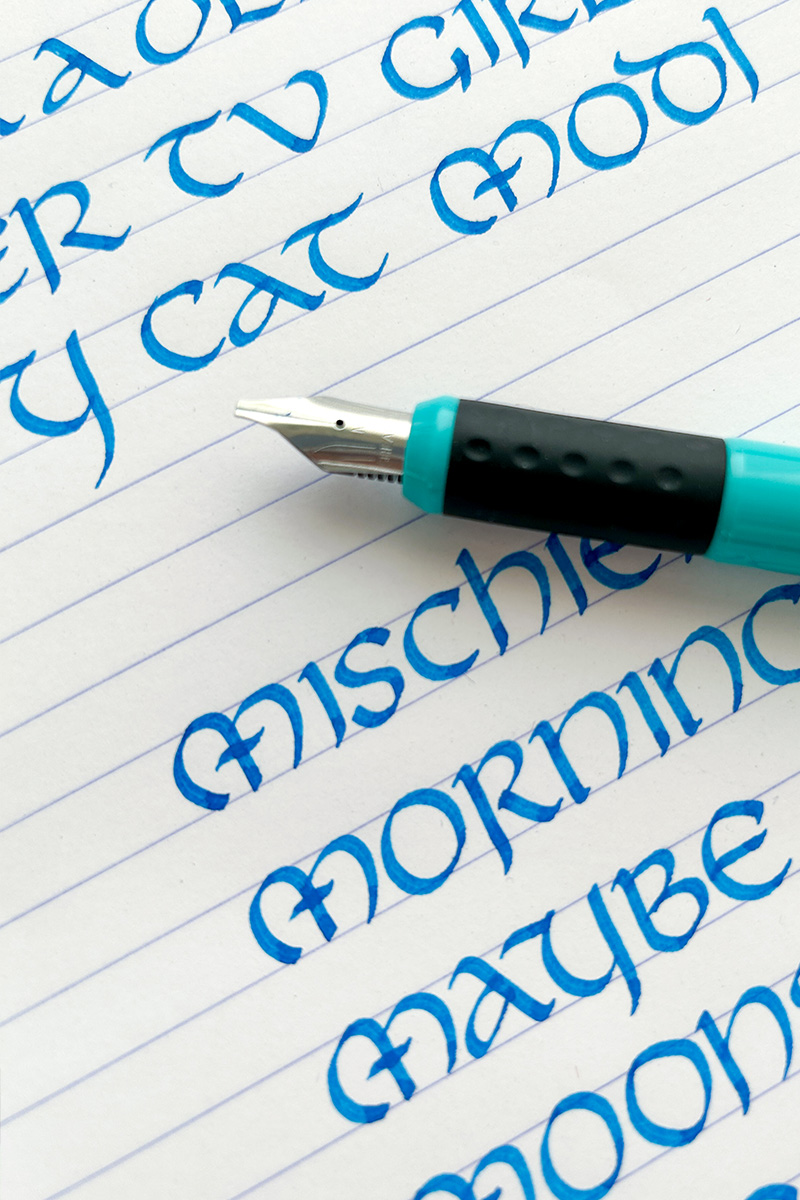 ER TV GIRL
Y CAT MODI
MISCHIE
MORNING
MAYBE
MOON